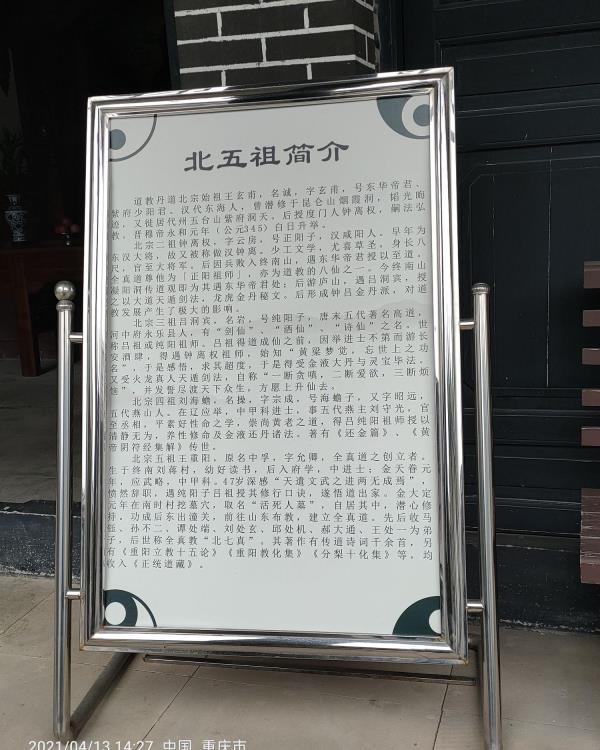 北五祖简介
道教丹道北宗始祖王玄甫，名诚，字玄甫，号东华帝君、
紫府少阳君。汉代东海人，曾潜修于昆仑山烟霞洞，韬光晦
迹，又徙居代州五台山紫府洞天，后授度门人钟离权，嗣法弘
教。晋穆帝永和元年（公元345）白日升举。
北宗二祖钟离权，字云房，号正阳子，汉咸阳人。早年为
东汉大将，故又被称做汉钟离。少工文学，尤喜草圣，身长八
尺，官至大将军。后因兵败入终南山，遇东华帝君授以至道。
全真道尊他为「正阳祖师」，亦为道教的八仙之一。今终南山
凝阳洞传道观即为其遇东华帝君处；后游庐山，遇吕洞宾，授
之以大道天遁剑法，龙虎金丹秘文。后形成钟吕金丹派，对道
教发展产生了极大的影响。
北宗三祖吕洞宾，名岩，号纯阳子，唐末五代著名高道，
河中府永乐县人，有“剑仙”、“酒仙”、“诗仙”之名。世
称吕祖或纯阳祖师。吕祖得道成仙之前，因举进士不第而游长
安酒肆，得遇钟离权祖师，始知“黄梁梦觉，忘世上之功
名”，于是感悟，求其超度，于是得受金液大丹与灵宝毕法，
又受火龙真人天遁剑法，自称“一断贪嗔，二断爱欲，三断烦
恼”，并发誓尽渡天下众生，方愿上升仙去。
北宗四祖刘海蟾，名操，字宗成，号海蟾子，又字昭远，
五代燕山人。在辽应举，中甲科进士，事五代燕主刘守光，官
至丞相，平素好性命之学，崇尚黄老之道，得吕纯阳祖师授以
清静无为，养性修命及金液还丹诸法。著有《还金篇》、《黄
帝阴符经集解》传世。
北宗五祖王重阳，原名中孚，字允卿，全真道之创立者。
生于终南刘蒋村，幼好读书，后入府学，中进士；金天眷元
年，应武略，中甲科。47岁深感“天遣文武之进两无成焉”，
愤然辞职，遇纯阳子吕祖授其修行口诀，遂悟道出家。金大定
元年在南时村挖墓穴，取名“活死人墓”，自居其中，潜心修
持，功成后东出潼关，前往山东布教，建立全真道。先后收马
钰、孙不二、谭处端、刘处玄、邱处机、郝大通、王处一为弟
子，后世称全真教“北七真”。其著作有传道诗词千余首，另
有《重阳立教十五论》《重阳教化集》《分梨十化集》等，均
收入《正统道藏》。
2021/04/13 14:27 中国 重庆市